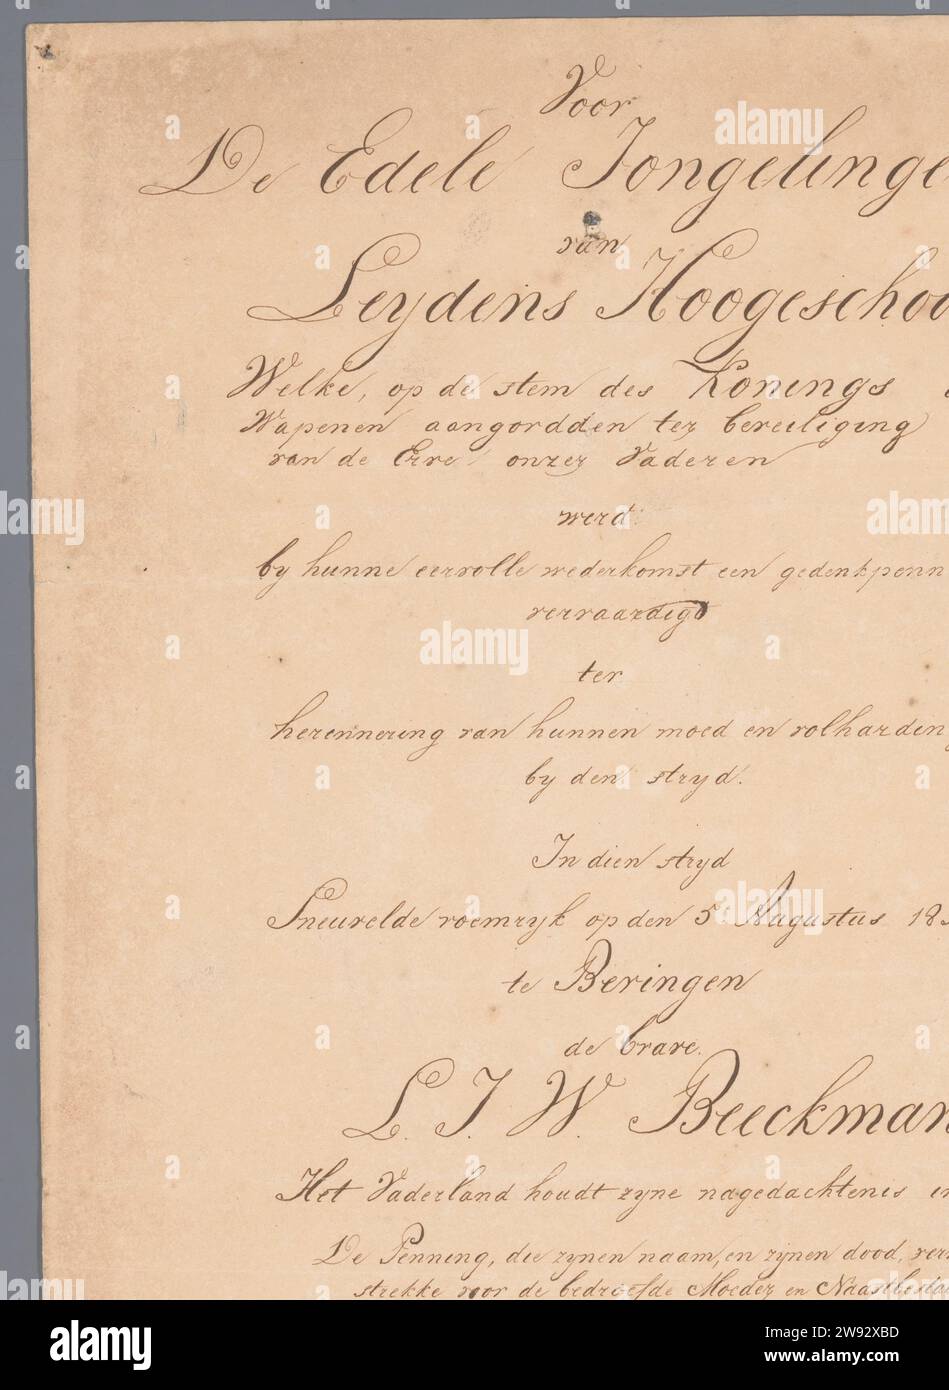 Voor
De Edele Jongelinge
van
Leydens Hoogeschoo
Welke, op de stem des Konings
Wapenen aangordden ter bereiliging
van de Erve onzer Vaderen
werd
by hunne eervolle wederkomst een gedenkpenn
vervaardigd
ter
herinnering van hunnen moed en volharding
by den stryd.
In dien stryd
Sneuvelde roemryk op den 5e Augustus 183
te Beringen
de brave.
L. J. W. Beeckman
Het Vaderland houdt zyne nagedachtenis in
De Penning, die zynen naam, en zynen dood, ver
strekke voor de bedroefde Moeder en Naastbesta
alamy
Image ID: 2W92XBD
www.alamy.com